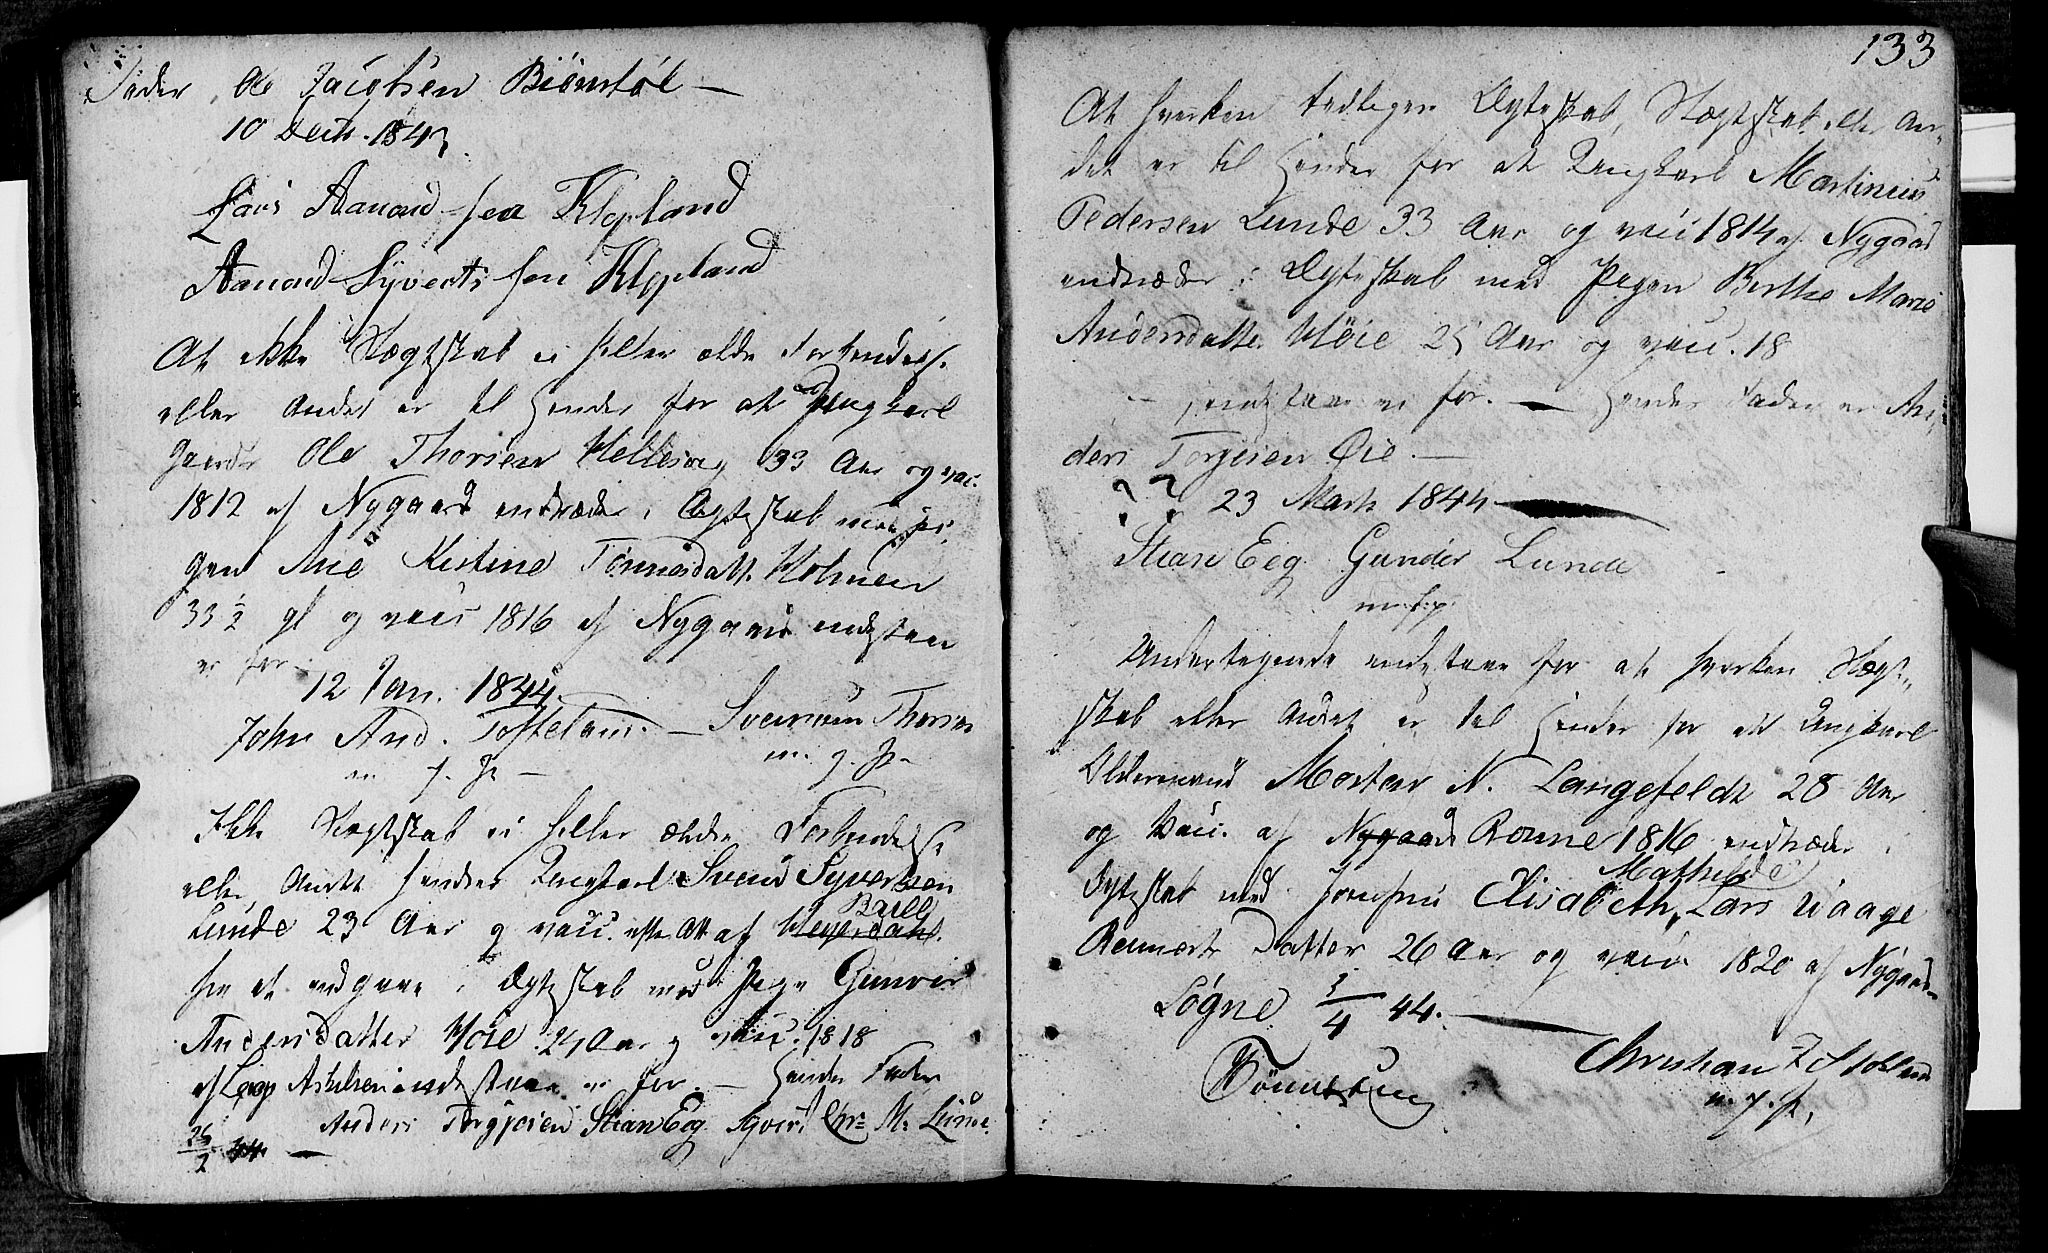 Fader Ole Jacobsen Biørnstøl —
10 Decb. 1843
Lars Aanond-sen Klepland
Aanond Syverts sen Klepland
At ikke Slægtskab ei heller ældre Forbindelse
eller Andet er til Hinder for at Ungkarl
Ole Thorsen Hellesog 33 Aar og vac.
1812 af Nygaard indtræder i Ægteskab med Pi-
gen Ane Kistine Tønnesdatt. Holmen
33 1/2 gl og vacc 1816 af Nygaard indestaae
vi for
12 Jan. 1844
John And. Tostelam. — Svennum Thorsen
m. f. P. — m. f. P.
Ikke Slægtskab ei heller ældre Forbindelse
eller Andet hindrer Ungkarl Svend Syvertsen
Bull
Lunde 23 Aar og vacc. efter Att af Heyerdahl.
fra at indgaae i Ægteskab med Pige Gunvor
Andersdatter Høie 29 Aar og vacc. 1818
af Askildsen indestaae vi for. — Hendes Fader
Anders Torgjeien Stian Eeg Syvert Chr: M: Lunde.
26/2 44. —
133
At hverken tidligere Ægteskab, Slægtskab eller An-
det er til Hinder for at Ungkarl Martinius
Pedersen Lunde 33 Aar og vacc 1814 af Nygaard
indtræder i Ægteskab med Pigen Berthe Marie
Andersdatter Høie 25 Aar og vacc. 18
— indestaae vi for. — Hendes Fader er An-
ders Torgeien Øie. —
? ? 23 Marts 1844 —
Stian Eeg Gunder Lunde
m.f.p.
Undertegnede indestaae for at hverken Slægt-
skab eller Andet er til Hinder for at Ungkarl
Oldermand Morten N. Langefeldt 28 Aar
og Vacc. af Nygaard Ronne 1816 indtræder i
Mathilde
Ægteskab med Jomfru Elisabeth, Lars Uaage
Reimerts Datter 26 Aar og vacc 1820 af Nygaard
Søgne 3/4 44. —
Christian F Stoltend
m. f. P.